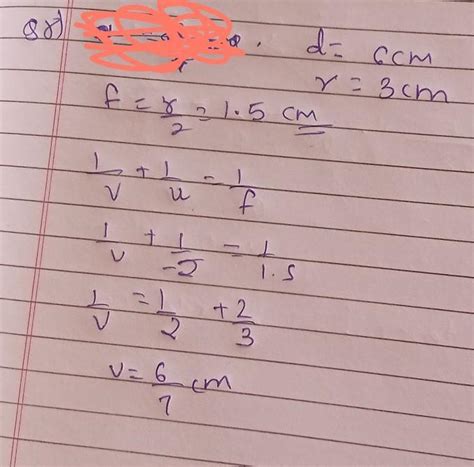 Q8) d = 6cm
r = 3cm
f = r/2 = 1.5 cm
1/v + 1/u = 1/f
1/v + 1/-2 = 1/1.5
1/v = 1/2 + 2/3
v = 6/7 cm